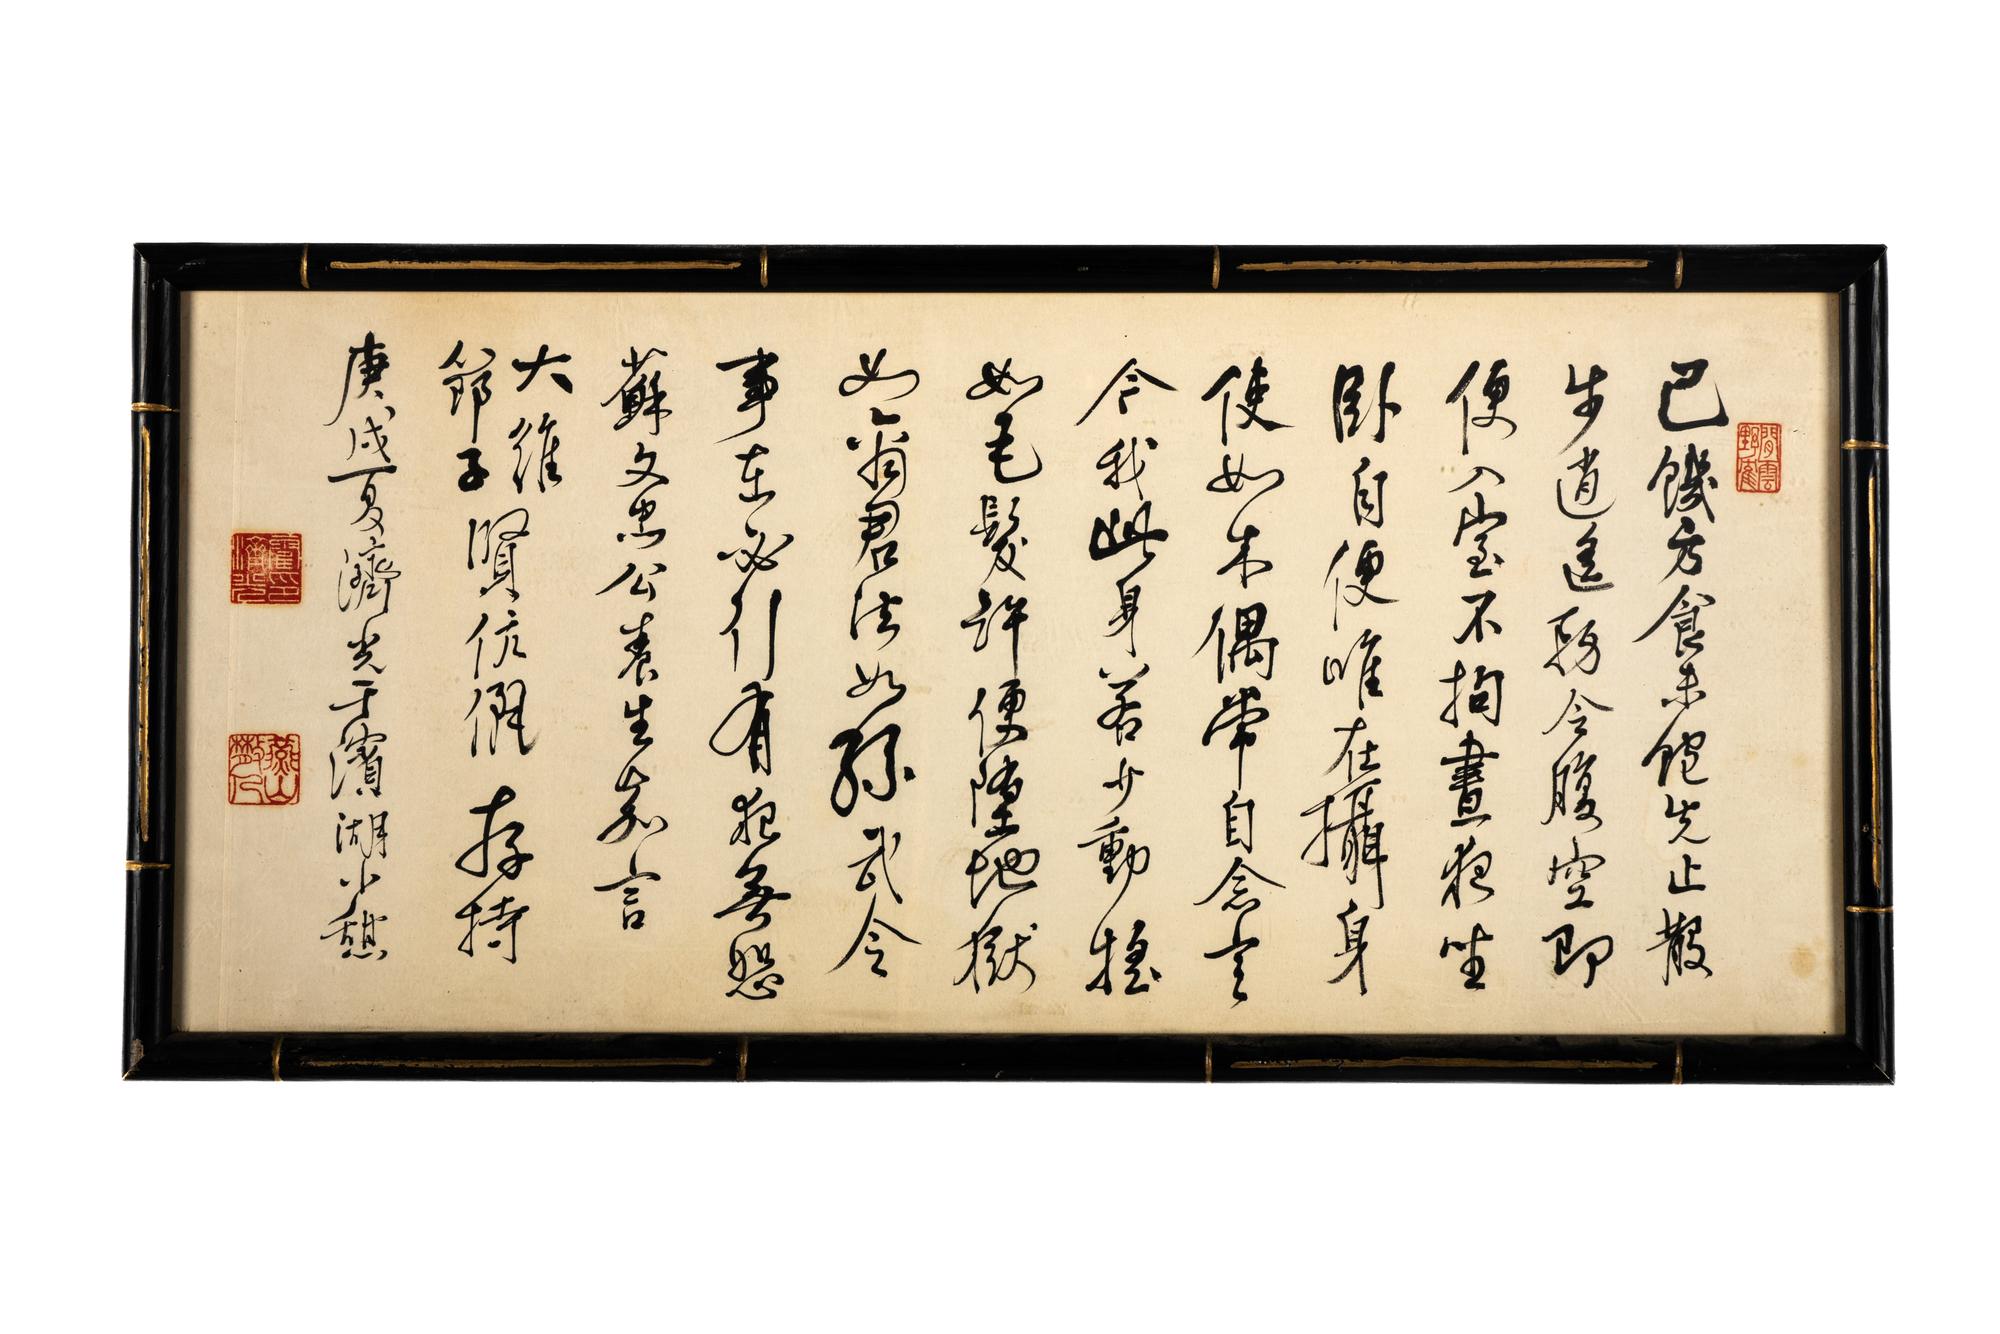 閒雲野鶴
已饑方食未飽先止散
步逍遙務令腹空即
便入室不拘晝夜坐
卧自便唯在攝身
使如木偶常自念言
今我此身若少動搖
如毛髮許便墮地獄
如商君法如孫武令
事在必行有犯無恐
蘇文忠公養生嘉言
大維
節子賢伉儷 存持
庚戌夏濟光于濱湖小憩